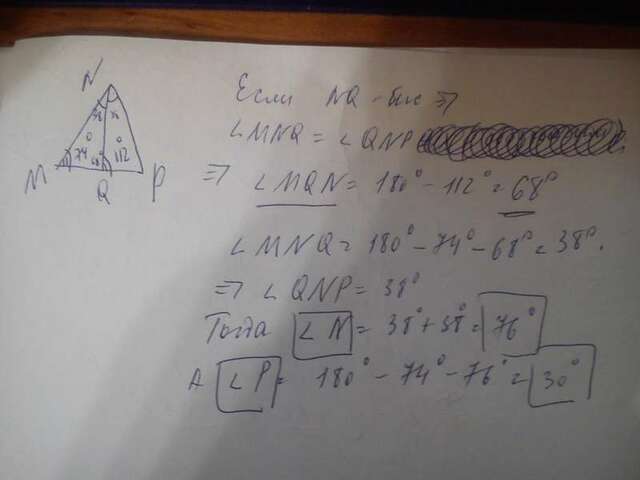 N
38 38
M 74° 68° 112° P
Q
Если NQ - бис ⇒
∠MNQ = ∠QNP
⇒ ∠MQN = 180° - 112° = 68°
∠MNQ = 180° - 74° - 68° = 38°.
⇒ ∠QNP = 38°
Тогда ∠N = 38° + 38° = 76°
А ∠P = 180° - 74° - 76° = 30°